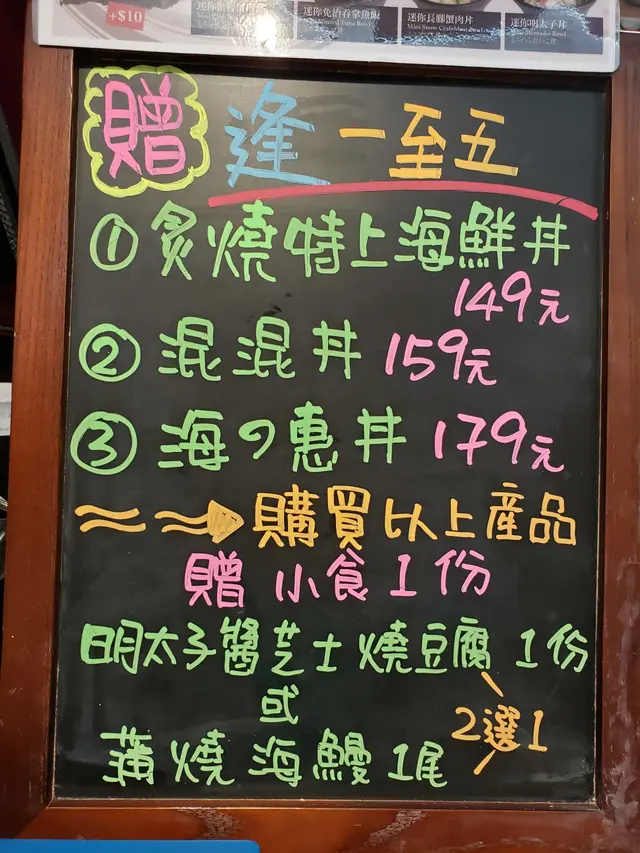 +$10
迷你免治吞拿魚飯
迷你長腳蟹肉丼
迷你明太子丼
贈 逢一至五
① 炙燒特上海鮮丼
149元
② 混混丼 159元
③ 海の惠丼 179元
購買以上產品
贈 小食1份
明太子醬芝士燒豆腐 1份
或
2選1
蒲燒海鰻 1尾